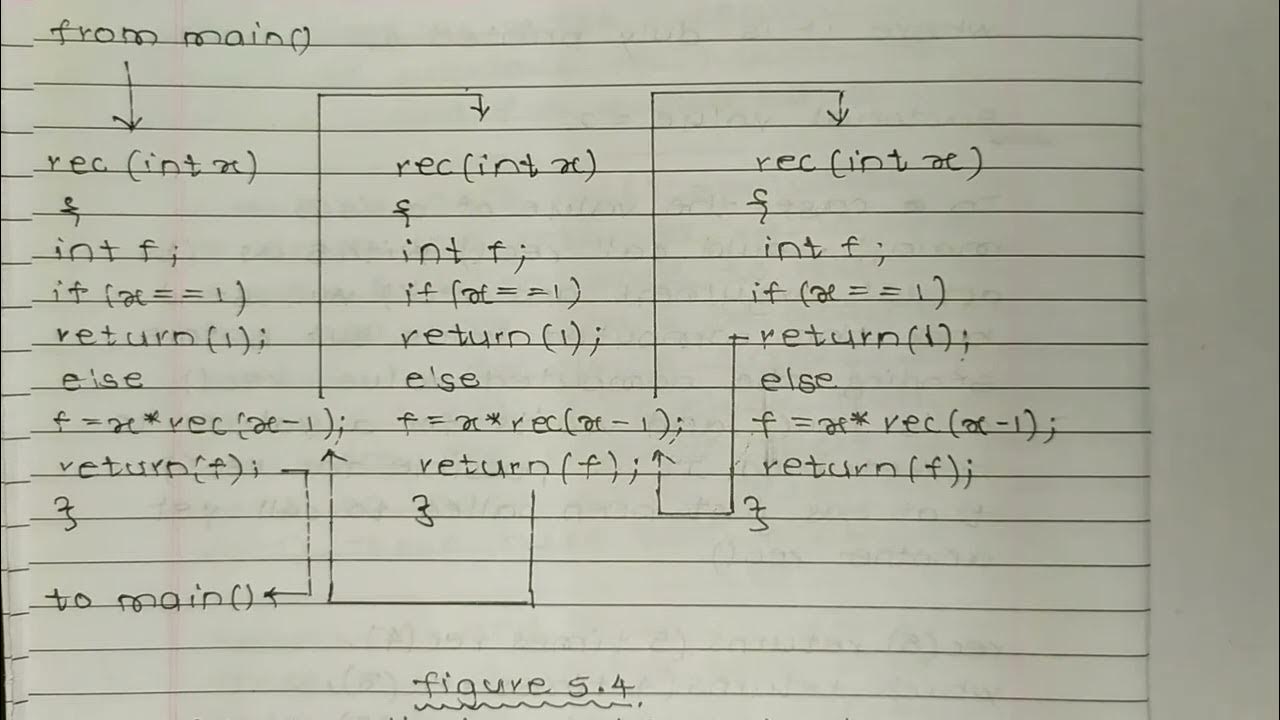 from main()
rec (int x) rec (int x) rec (int x)
{ { {
int f; int f; int f;
if (x==1) if (x==1) if (x==1)
return(1); return(1); return(1);
else else else
f=x*rec(x-1); f=x*rec(x-1); f=x*rec(x-1);
return(f); return(f); return(f);
} } }
to main()
figure 5.4.